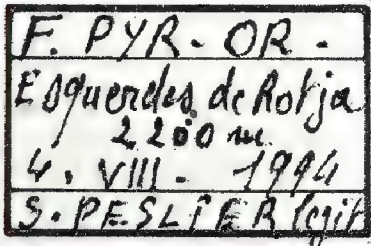 F. PYR-OR-
Esquerdes de Rotja
2200 m
4. VIII- 1994
S. PESLIER legit